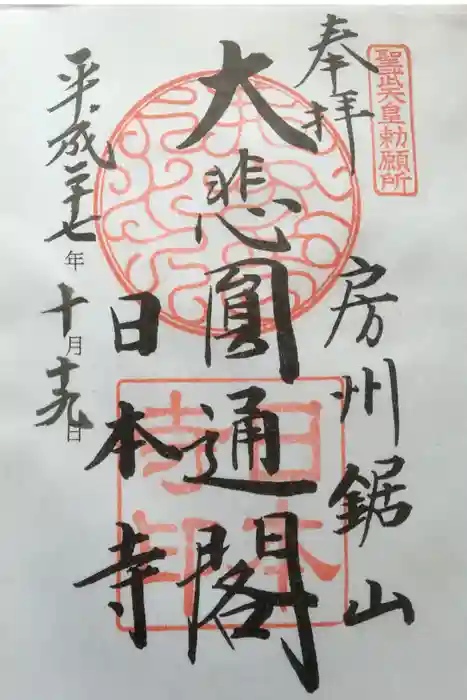 聖武天皇勅願所
奉拝
房州鋸山
大悲圓通閣
日本寺
平成二十七年十月十九日
日本寺印